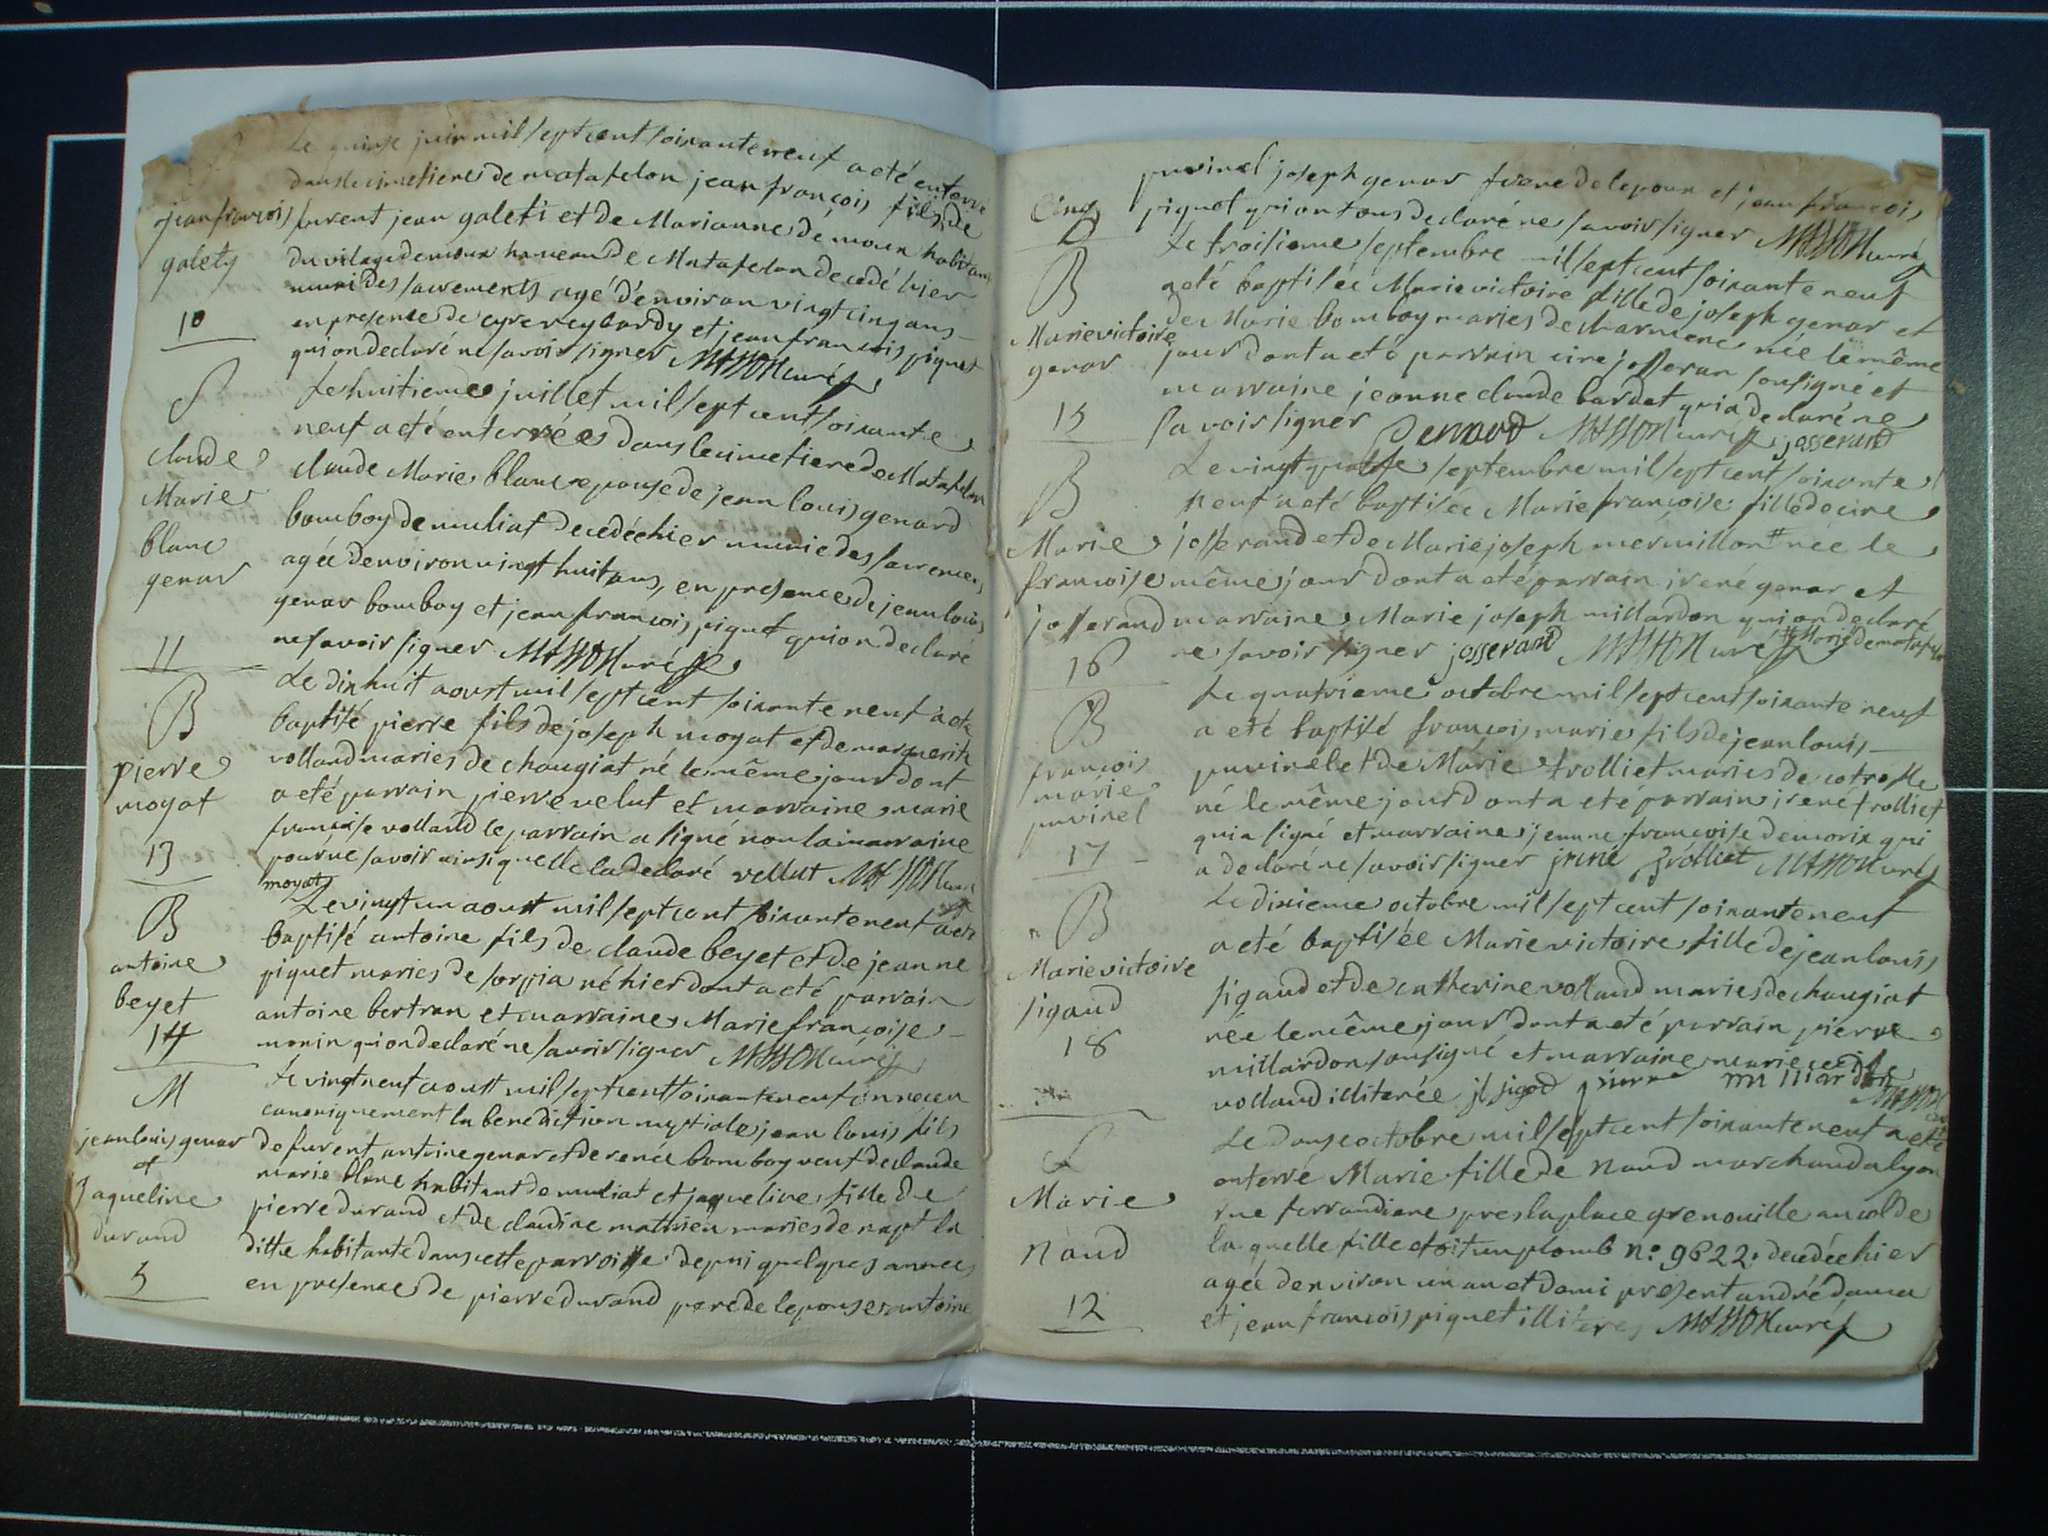 Le quinse juin mil sept cent soixante neuf a eté enterré
dans le cimetiere de matafelon jean françois fils de
jean françois
galety
10
furent jean galeti et de Marianne demoux habitans
du vilage demoux hameau de Matafelon decedé hier
muni des sacrements agé d'environ vingt cinq ans
en presence de cyre reybardy et jean françois piquet
qui on declaré ne savoir signer MASSON curé
S
claude
Marie
blanc
genar
11
Le huitieme juillet mil sept cent soixante
neuf a eté enterrée dans le cimetiere de Matafelon
claude Marie blanc epouse de jean louis genard
bomboy de muliat decedée hier munie des sacremens
agée denviron vingt huit ans, en presence de jean louis
genar bomboy et jean françois piquet qui on declaré
ne savoir signer MASSON curé
B
pierre
moyat
13
Le dix huit aoust mil sept cent soixante neuf a eté
baptisé pierre fils de joseph moyat et de marguerite
volland maries de chougiat né le même jour dont
a eté parrain pierre velut et marraine marie
françoise volland le parrain a signé non la marraine
pour ne savoir ainsi quelle la declaré vellut MASSON curé
moyat
B
antoine
beyet
14
Le vingt un aoust mil sept cent soixante neuf a eté
baptisé antoine fils de claude beyet et de jeanne
piquet maries de sorpia né hier dont a eté parrain
antoine bertran et marraine Marie françoise
monin qui on declaré ne savoir signer MASSON curé
M
jean louis genar
et
Jaqueline
durand
5
Le vingt neuf aoust mil sept cent soixante neuf on reçeu
canoniquement la benediction nuptiale jean louis fils
de furent antoine genar et de renée bomboy veuf de claude
marie blanc habitant de muliat et jaqueline fille de
pierre durand et de claudine mathieu maries de napt la
ditte habitante dans cette parroisse depui quelques années
en presence de pierre durand pere de lepouse antoine
Cinq
puvinel joseph genar frere de lepoux et jean françois
piquet qui on tous declaré ne savoir signer MASSON curé
B
Marie victoire
genar
15
Le troisieme septembre mil sept cent soixante neuf
a eté baptisée Marie victoire fille de joseph genar et
de Marie bomboy maries de charmene née le même
jour dont a eté parrain cire josseran sousigné et
marraine jeanne claude bardet qui a declaré ne
savoir signer MASSON curé josserand
B
Marie
françoise
josserand
16
Le vingt quatre septembre mil sept cent soixante
neuf a eté baptisée Marie françoise fille de cire
josserand et de Marie joseph mermillon # née le
même jour dont a eté parrain irené genar et
marraine Marie joseph millardon qui on declaré
ne savoir signer josserand MASSON curé # Maries de matafelon
B
françois
marie
puvinel
17
Le quatrieme octobre mil sept cent soixante neuf
a eté baptisé françois marie fils de jean louis
puvinel et de Marie trolliet maries de cotrosse
né le même jour dont a eté parrain irené trolliet
qui a signé et marraine jeanne françoise demorix qui
a declaré ne savoir signer jrené trolliet MASSON curé
B
Marie victoire
sigaud
18
Le dixieme octobre mil sept cent soixante neuf
a eté baptisée Marie victoire fille de jean louis
sigaud et de catherine volland maries de chougiat
née le même jour dont a eté parrain pierre
millardon sousigné et marraine marie cecile
volland illiterée jl sigod pierre millardon MASSON curé
S
Marie
Naud
12
Le douse octobre mil sept cent soixante neuf a eté
enterré Marie fille de Naud marchand a lyon
rue ferrandiere pres la place grenouille au col de
la quelle fille etoit un plomb No. 9622. decedée hier
agée denviron un an et demi present andré dama
et jean françois piquet illiteres MASSON curé